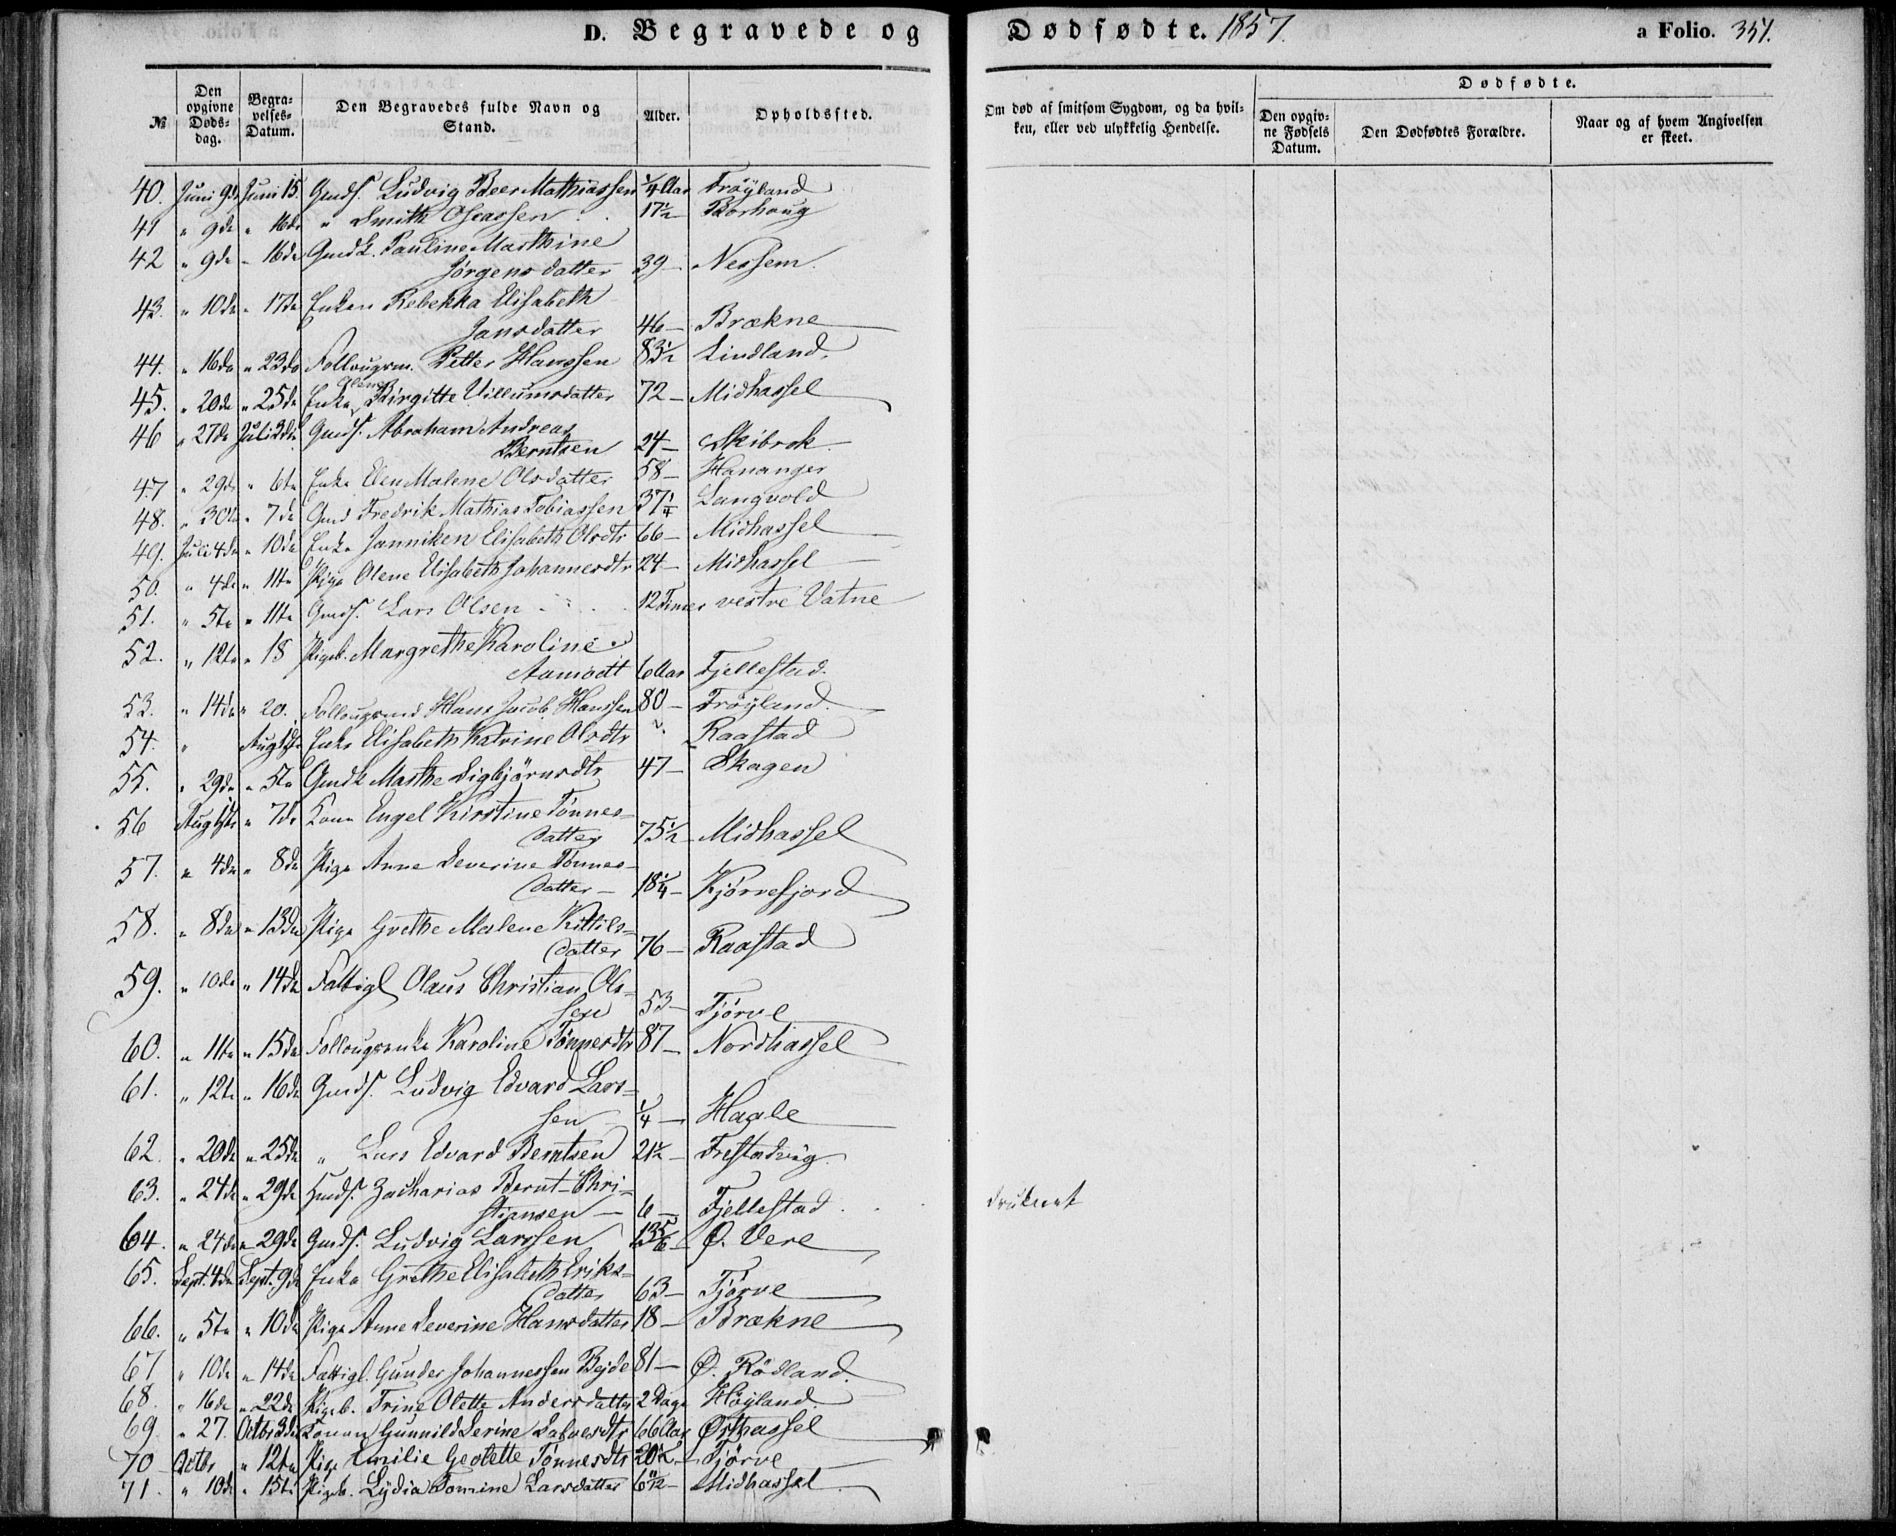 D. Begravede og Dødfødte. 1857. a Folio. 351.
№ Den opgivne Døds-dag. Begra-velses-Datum. Den Begravedes fulde Navn og Stand. Alder. Opholdssted. Om død af smitsom Sygdom, og da hvil-ken, eller ved ulykkelig Hendelse. Dødfødte. Den opgiv-ne Fødsels Datum. Den Dødfødtes Forældre. Naar og af hvem Angivelsen er skeet.
40. Juni 9de Juni 15. Gmds. Ludvig Beer Mathiassen 1/4 Aar Frøyland
41 " 9de " 16de " Smith Oseassen 17 1/2 Borhoug
42 " 9de " 16de Gmdk. Pauline Marthine
Jørgensdatter 39 — Nessem.
43. " 10de " 17de Enken Rebekka Elisabeth
Jansdatter 46 — Brækne
44. " 16de " 23de Follougsm. Petter Hanssen 83 1/2 Lindland.
45. " 20de " 25de Enke Olene Birgitte Villumsdatter 72 — Midhassel
46 " 27de Juli 3die Gmds. Abraham Andreas
Berntsen 24 — Skibrok
47 " 29de " 6te Enke Elen Malene Olsdatter 58 — Hananger
48. " 30te " 7de Gmd Fredrik Mathias Tobiassen 37 1/4 Langvold
49. Juli 4de " 10de Enke Janniken Elisabeth Olsdtr 66 — Midhassel
50. " 4de " 11te Pige Olene Elisabeth Johannesdtr 24 — Midhassel
51. " 5te " 11te Gmds. Lars Olsen 12 Timer vestre Vatne
52. " 12te " 18 Pigeb. Margrethe Karoline
Aamodt 6 Aar Fjellestad.
53. " 14de " 20. Follougsmd Hans Jacob Hanssen 80 — Frøyland.
54. " Aug 1ste Enke Elisabeth Katrine Olsdtr " Raastad
55. " 29de " 5te Gmdk Marthe Sigbjørnsdtr 47 — Skagen
56 Aug 1ste " 7de Kone Engel Kirstine Tønnes-
datter 75 1/2 — Midhassel
57. " 4de " 8de Pige Anne Severine Tønnes-
datter — 18 1/4 — Kjørrefjord
58. " 8de " 13de Pige Grethe Malene Kittils-
datter 76 — Raastad
59. " 10de " 14de Fattigl Olaus Christian Ols-
sen 53 — Tjørve
60. " 11te " 15de Follougsenke Karoline Tønnesdtr 87 — Nordhassel
61. " 12te " 16de Gmds. Ludvig Edvard Lars-
sen 1/4 — Haale
62. " 20de " 25de " Lars Edvard Berntsen 2 1/2 — Frestadvig.
63. " 24de " 29de Hmds. Zacharias Bernt Chri-
stiansen — 6 — Fjellestad. druknet
64. " 24de " 29de Gmds. Ludvig Larssen 13 5/6 — Ø. Vere
65. Sept. 4de Sept. 9de Enke Grethe Elisabeth Eriks-
datter 63 — Tjørve
66. " 5te " 10de Pige Anne Severine Hansdatter 18 — Brækne
67 " 10de " 14de Fattigl. Gunder Johannessen Bejde 81 — Ø. Rødland.
68. " 16de " 22de Pigeb. Trine Olette Andersdatter 2 Dage Høyland.
69. " 27. Octbr 3die Konen Gunnild Serine Salvesdtr 66 Aar Østhassel
70 Octbr " 12te Pige Emilie Geolette Tønnesdtr 20 1/2 — Tjørve
71. " 10de " 15te Pigeb. Lydia Tomine Larsdatter 6 11/12 — Midhassel